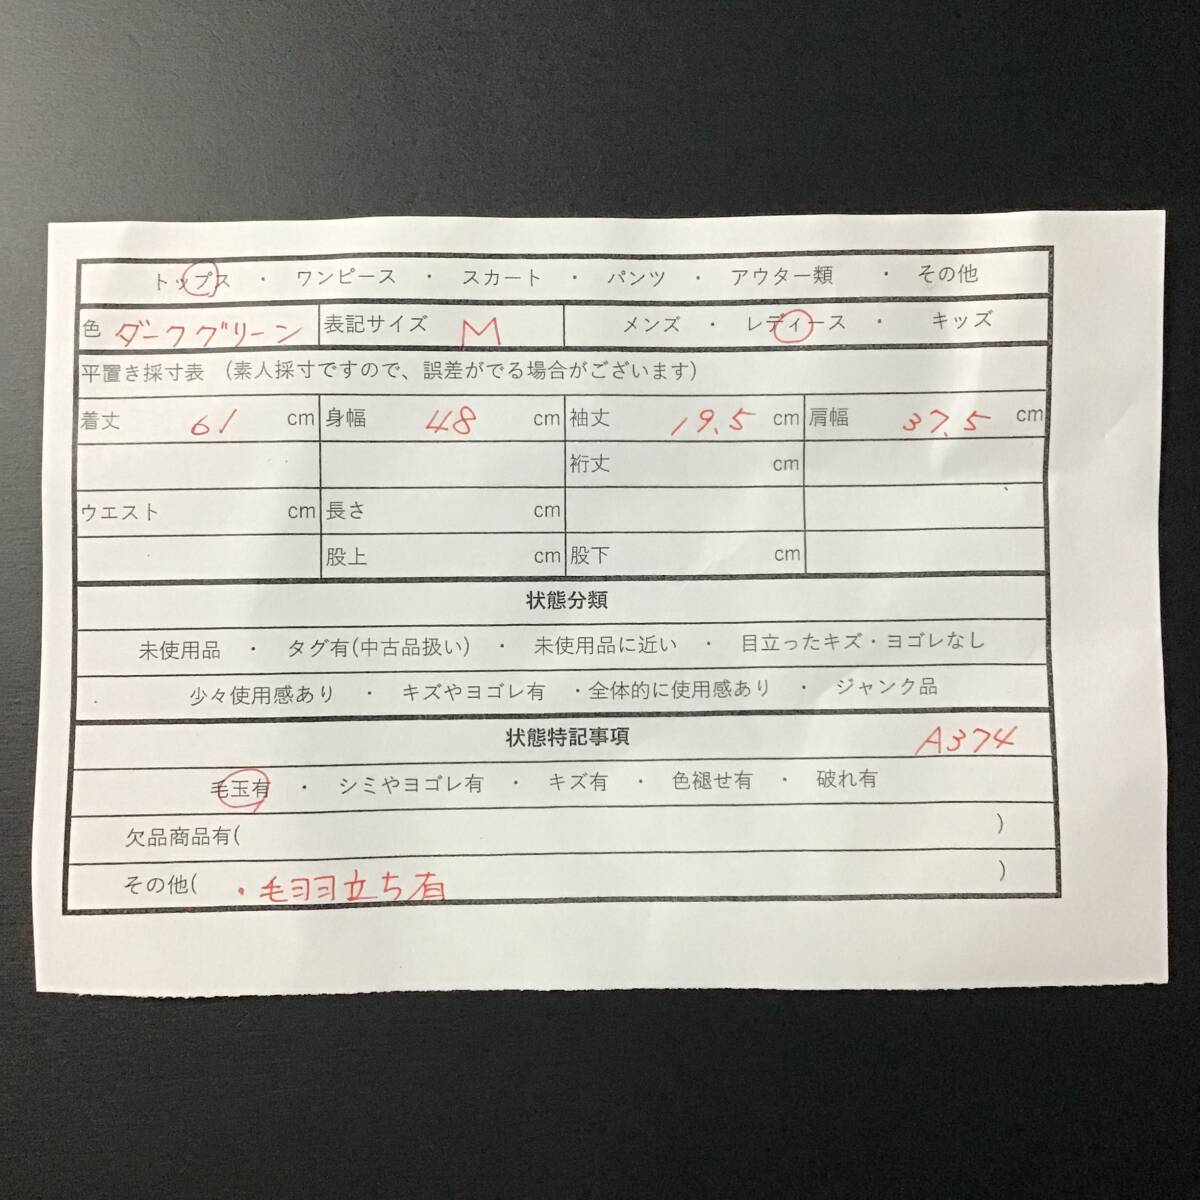 トップス ・ ワンピース ・ スカート ・ パンツ ・ アウター類 ・ その他
色 ダークグリーン 表記サイズ M メンズ ・ レディース ・ キッズ
平置き採寸表 (素人採寸ですので、誤差がでる場合がございます)
着丈 61 cm 身幅 48 cm 袖丈 19.5 cm 肩幅 37.5 cm
裄丈 cm
ウエスト cm 長さ cm
股上 cm 股下 cm
状態分類
未使用品 ・ タグ有(中古品扱い) ・ 未使用品に近い ・ 目立ったキズ・ヨゴレなし
少々使用感あり ・ キズやヨゴレ有 ・全体的に使用感あり ・ ジャンク品
状態特記事項 A374
毛玉有 ・ シミやヨゴレ有 ・ キズ有 ・ 色褪せ有 ・ 破れ有
欠品商品有( )
その他( ・毛羽立ち有 )